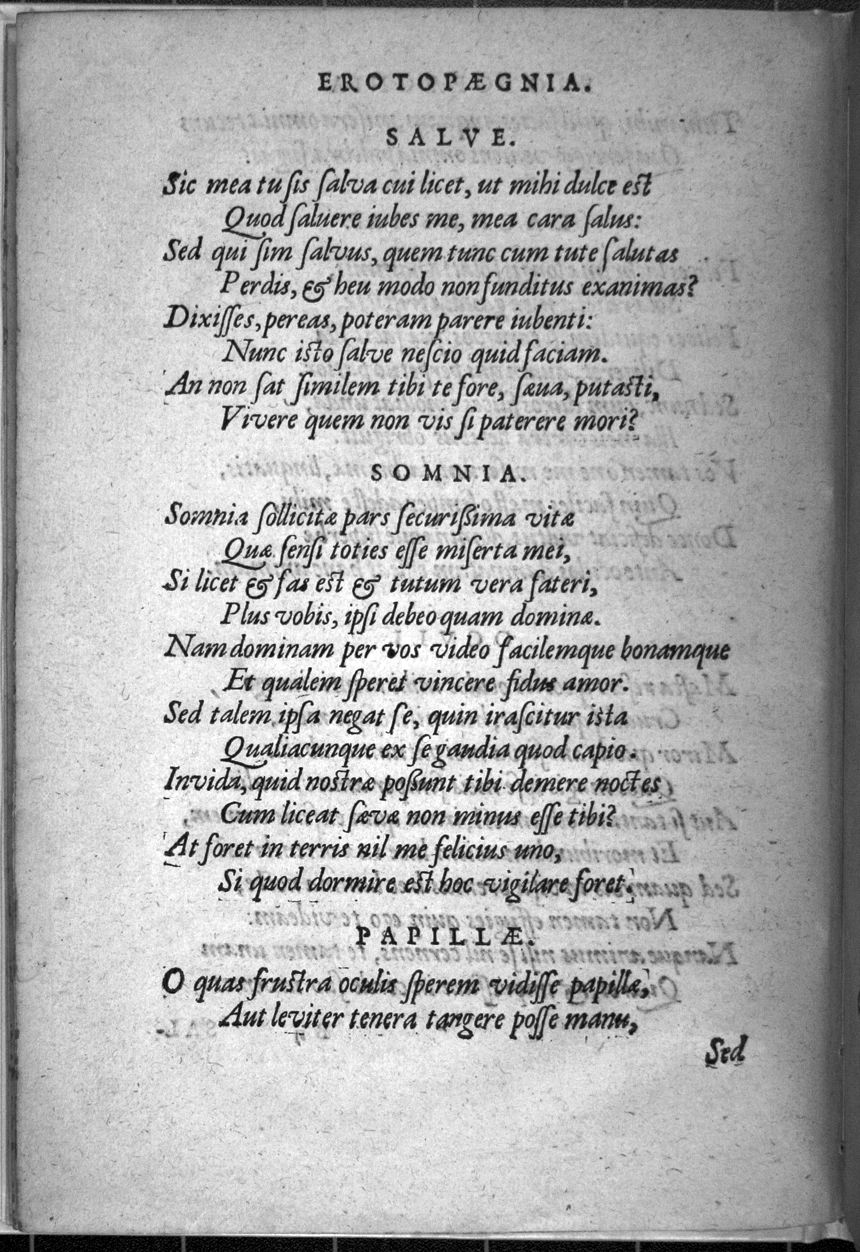 EROTOPÆGNIA.
SALVE.
Sic mea tu ſis ſalva cui licet, ut mihi dulce est
Quod ſaluere iubes me, mea cara ſalus:
Sed qui ſim ſalvus, quem tunc cum tute ſalutas
Perdis, & heu modo non funditus exanimas?
Dixiſſes, pereas, poteram parere iubenti:
Nunc isto ſalve neſcio quid faciam.
An non ſat ſimilem tibi te fore, ſæua, putasti,
Vivere quem non vis ſi paterere mori?
SOMNIA.
Somnia ſollicitæ pars ſecurißima vitæ
Quæ ſenſi toties eſſe miſerta mei,
Si licet & fas est & tutum vera fateri,
Plus vobis, ipſi debeo quam dominæ.
Nam dominam per vos video facilemque bonamque
Et qualem ſperet vincere fidus amor.
Sed talem ipſa negat ſe, quin iraſcitur ista
Qualiacunque ex ſe gaudia quod capio.
Invida, quid nostræ poßunt tibi demere noctes
Cum liceat ſævæ non minus eſſe tibi?
At foret in terris nil me felicius uno,
Si quod dormire est hoc vigilare foret.
PAPILLÆ.
O quas frustra oculis ſperem vidiſſe papillæ,
Aut leviter tenera tangere poſſe manu,
Sed